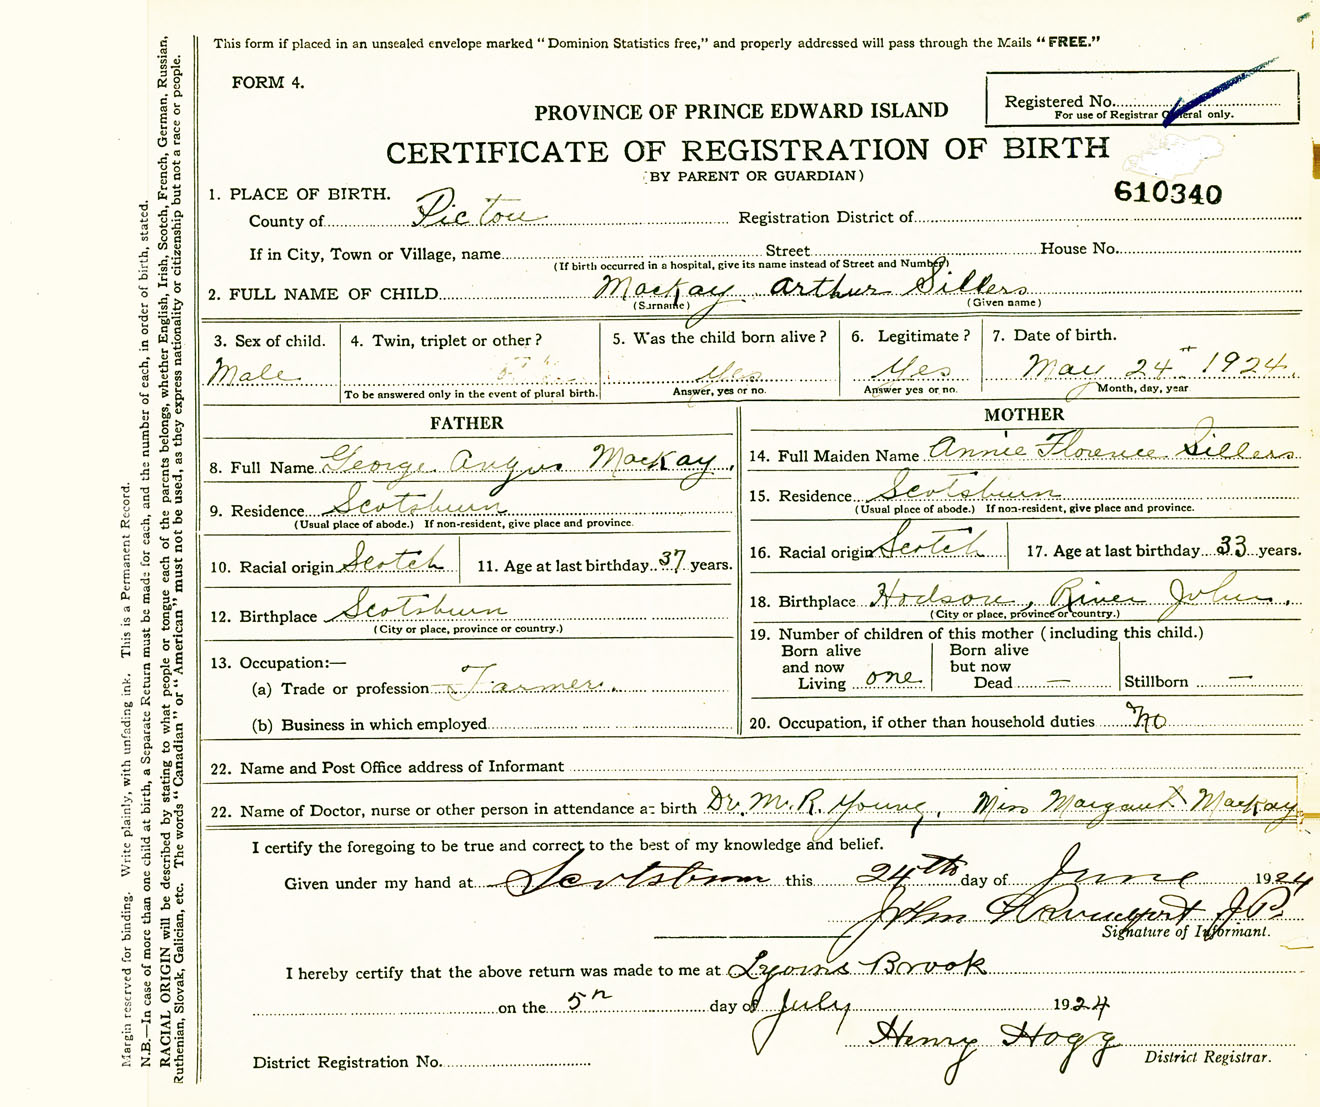 This form if placed in an unsealed envelope marked "Dominion Statistics free," and properly addressed will pass through the Mails "FREE."
FORM 4.
Registered No.
For use of Registrar General only.
PROVINCE OF PRINCE EDWARD ISLAND
CERTIFICATE OF REGISTRATION OF BIRTH
(BY PARENT OR GUARDIAN)
610340
1. PLACE OF BIRTH.
County of Pictou Registration District of
If in City, Town or Village, name Street House No.
(If birth occurred in a hospital, give its name instead of Street and Number)
2. FULL NAME OF CHILD MacKay Arthur Sillers
(Surname) (Given name)
3. Sex of child. 4. Twin, triplet or other? 5. Was the child born alive? 6. Legitimate? 7. Date of birth.
Male Yes Yes May 24th 1924.
To be answered only in the event of plural birth. Answer, yes or no. Answer yes or no. Month, day, year
FATHER
8. Full Name George Angus MacKay.
9. Residence Scotsburn
(Usual place of abode.) If non-resident, give place and province.
10. Racial origin Scotch 11. Age at last birthday 37 years.
12. Birthplace Scotsburn
(City or place, province or country.)
13. Occupation:—
(a) Trade or profession Farmer.
(b) Business in which employed
MOTHER
14. Full Maiden Name Annie Florence Sillers
15. Residence Scotsburn
(Usual place of abode.) If non-resident, give place and province.
16. Racial origin Scotch 17. Age at last birthday 33 years.
18. Birthplace Hodson, River John.
(City or place, province or country.)
19. Number of children of this mother (including this child.)
Born alive Born alive
and now but now
Living one Dead — Stillborn —
20. Occupation, if other than household duties No
22. Name and Post Office address of Informant
22. Name of Doctor, nurse or other person in attendance at birth Dr. M. R. Young, Miss Margaret MacKay
I certify the foregoing to be true and correct to the best of my knowledge and belief.
Given under my hand at Scotsburn this 24th day of June 1924
John Davenport J.P.
Signature of Informant.
I hereby certify that the above return was made to me at Lyons Brook
on the 5th day of July 1924
Henry Hogg
District Registration No. District Registrar.
Margin reserved for binding. Write plainly, with unfading ink. This is a Permanent Record.
N.B.—In case of more than one child at birth, a Separate Return must be made for each, and the number of each, in order of birth, stated.
RACIAL ORIGIN will be described by stating to what people or tongue each of the parents belongs, whether English, Irish, Scotch, French, German, Russian,
Ruthenian, Slovak, Galician, etc. The words "Canadian" or "American" must not be used, as they express nationality or citizenship but not a race or people.